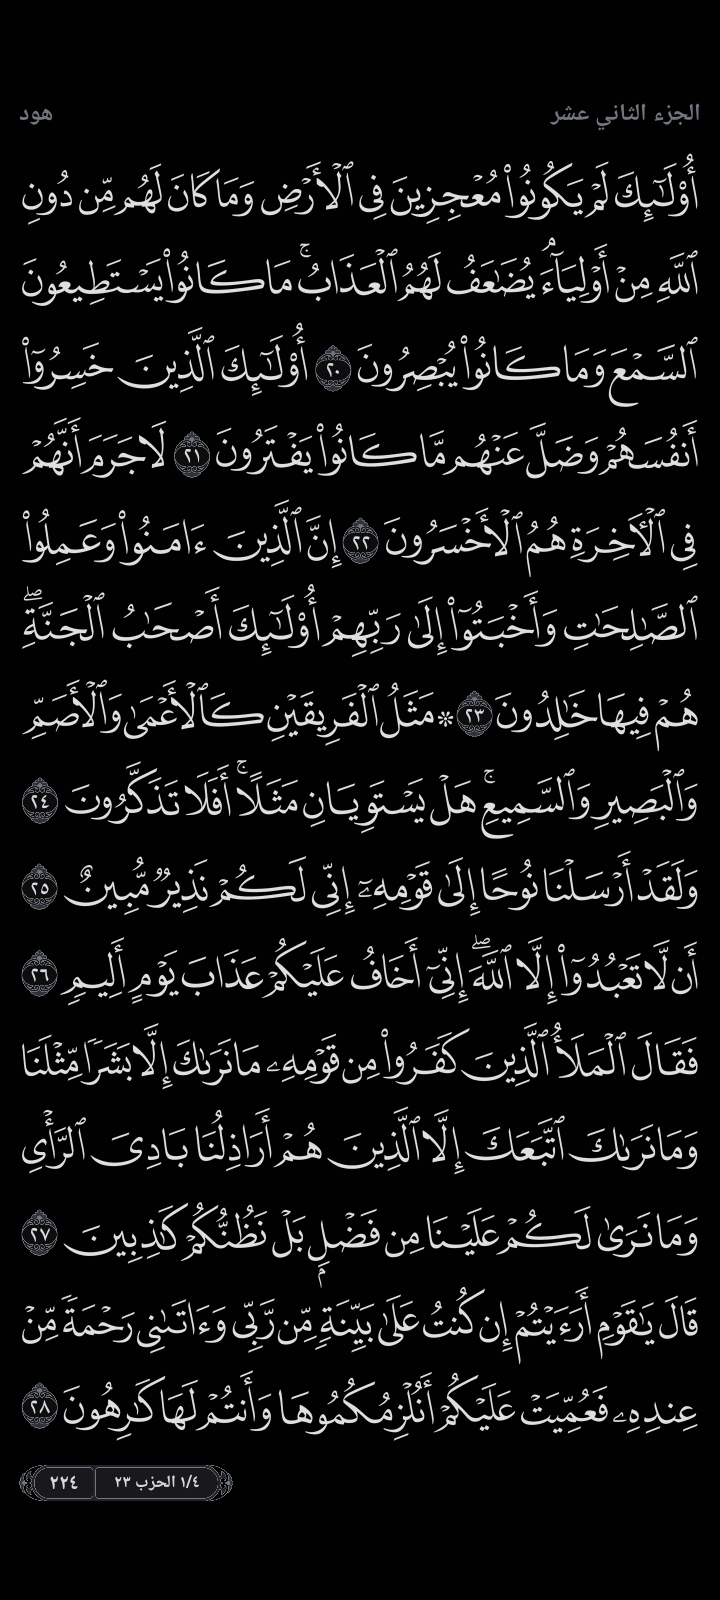 الجزء الثاني عشر
هود
أُوْلَٰٓئِكَ لَمۡ يَكُونُواْ مُعۡجِزِينَ فِي ٱلۡأَرۡضِ وَمَا كَانَ لَهُم مِّن دُونِ
ٱللَّهِ مِنۡ أَوۡلِيَآءَۘ يُضَٰعَفُ لَهُمُ ٱلۡعَذَابُۚ مَا كَانُواْ يَسۡتَطِيعُونَ
ٱلسَّمۡعَ وَمَا كَانُواْ يُبۡصِرُونَ ٢٠ أُوْلَٰٓئِكَ ٱلَّذِينَ خَسِرُوٓاْ
أَنفُسَهُمۡ وَضَلَّ عَنۡهُم مَّا كَانُواْ يَفۡتَرُونَ ٢١ لَا جَرَمَ أَنَّهُمۡ
فِي ٱلۡأٓخِرَةِ هُمُ ٱلۡأَخۡسَرُونَ ٢٢ إِنَّ ٱلَّذِينَ ءَامَنُواْ وَعَمِلُواْ
ٱلصَّٰلِحَٰتِ وَأَخۡبَتُوٓاْ إِلَىٰ رَبِّهِمۡ أُوْلَٰٓئِكَ أَصۡحَٰبُ ٱلۡجَنَّةِۖ
هُمۡ فِيهَا خَٰلِدُونَ ٢٣ ۞ مَثَلُ ٱلۡفَرِيقَيۡنِ كَٱلۡأَعۡمَىٰ وَٱلۡأَصَمِّ
وَٱلۡبَصِيرِ وَٱلسَّمِيعِۚ هَلۡ يَسۡتَوِيَانِ مَثَلًاۚ أَفَلَا تَذَكَّرُونَ ٢٤
وَلَقَدۡ أَرۡسَلۡنَا نُوحًا إِلَىٰ قَوۡمِهِۦٓ إِنِّي لَكُمۡ نَذِيرٞ مُّبِينٌ ٢٥
أَن لَّا تَعۡبُدُوٓاْ إِلَّا ٱللَّهَۖ إِنِّيٓ أَخَافُ عَلَيۡكُمۡ عَذَابَ يَوۡمٍ أَلِيمٖ ٢٦
فَقَالَ ٱلۡمَلَأُ ٱلَّذِينَ كَفَرُواْ مِن قَوۡمِهِۦ مَا نَرَىٰكَ إِلَّا بَشَرٗا مِّثۡلَنَا
وَمَا نَرَىٰكَ ٱتَّبَعَكَ إِلَّا ٱلَّذِينَ هُمۡ أَرَاذِلُنَا بَادِيَ ٱلرَّأۡيِ
وَمَا نَرَىٰ لَكُمۡ عَلَيۡنَا مِن فَضۡلِۭ بَلۡ نَظُنُّكُمۡ كَٰذِبِينَ ٢٧
قَالَ يَٰقَوۡمِ أَرَءَيۡتُمۡ إِن كُنتُ عَلَىٰ بَيِّنَةٖ مِّن رَّبِّي وَءَاتَىٰنِي رَحۡمَةٗ مِّنۡ
عِندِهِۦ فَعُمِّيَتۡ عَلَيۡكُمۡ أَنُلۡزِمُكُمُوهَا وَأَنتُمۡ لَهَا كَٰرِهُونَ ٢٨
١/٤ الحزب ٢٣
٢٢٤